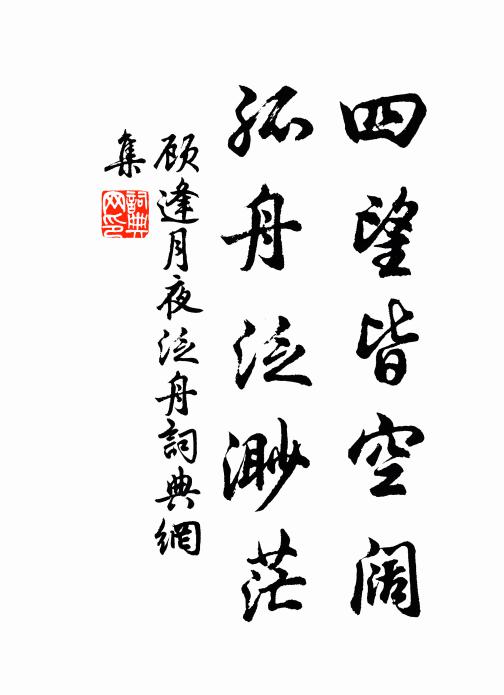 四望皆空阔
孤舟泛渺茫
顾逢月夜泛舟詞典網
集
詞典
网印